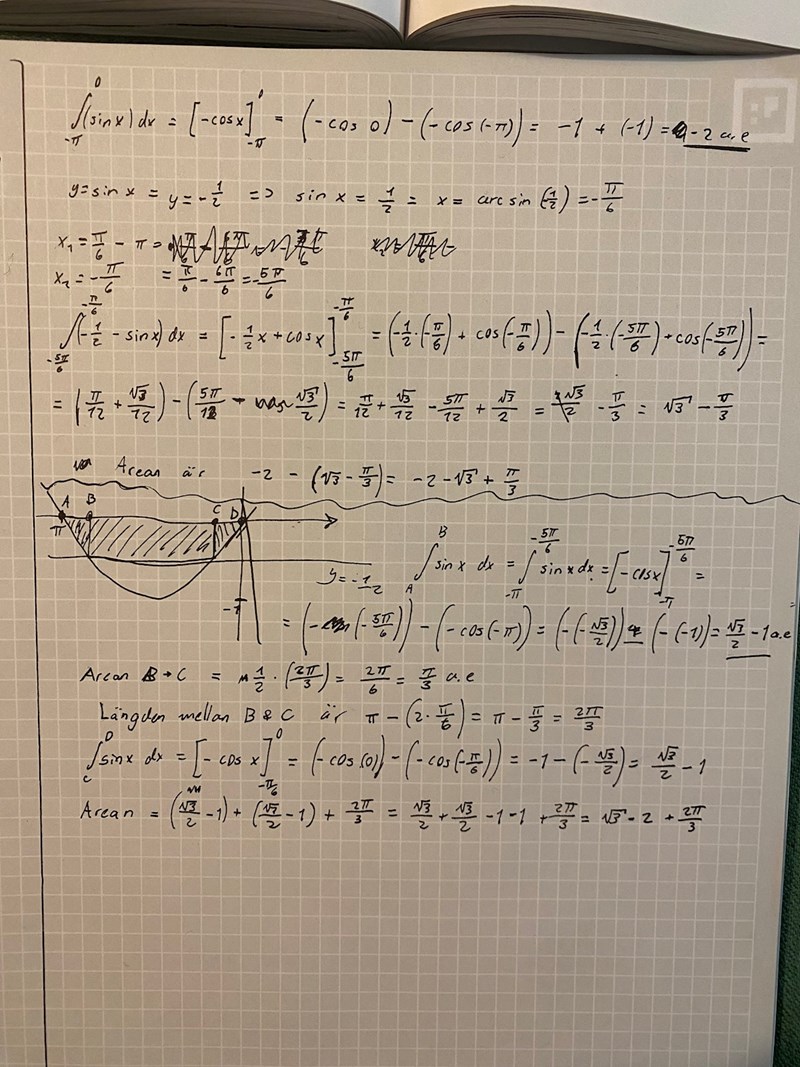 ∫_{-π}^{0} (sin x) dx = [-cos x]_{-π}^{0} = (-cos 0) - (-cos(-π)) = -1 + (-1) = -2 a.e
y = sin x = y = -1/2 => sin x = 1/2 = x = arcsin(1/2) = -π/6
x₁ = π/6 - π =
x₂ = -π/6 = π/6 - 6π/6 = -5π/6
∫_{-5π/6}^{-π/6} (-1/2 - sin x) dx = [-1/2 x + cos x]_{-5π/6}^{-π/6} = (-1/2 · (-π/6) + cos(-π/6)) - (-1/2 · (-5π/6) + cos(-5π/6)) =
= (π/12 + √3/12) - (5π/12 - √3/2) = π/12 + √3/12 - 5π/12 + √3/2 = 2√3/2 - π/3 = √3 - π/3
Arean är -2 - (√3 - π/3) = -2 - √3 + π/3
A B C D
π
y = -1/2
-1
∫_{A}^{B} sin x dx = ∫_{-π}^{-5π/6} sin x dx = [-cos x]_{-π}^{-5π/6} =
= (- (-5π/6)) - (-cos(-π)) = (-(-√3/2)) + (-(-1)) = √3/2 - 1 a.e
Arean B → C = 1/2 · (2π/3) = 2π/6 = π/3 a.e
Längden mellan B & C är π - (2 · π/6) = π - π/3 = 2π/3
∫_{C}^{D} sin x dx = [-cos x]_{-π/6}^{0} = (-cos(0)) - (-cos(-π/6)) = -1 - (-√3/2) = √3/2 - 1
Arean = (√3/2 - 1) + (√3/2 - 1) + 2π/3 = √3/2 + √3/2 - 1 - 1 + 2π/3 = √3 - 2 + 2π/3